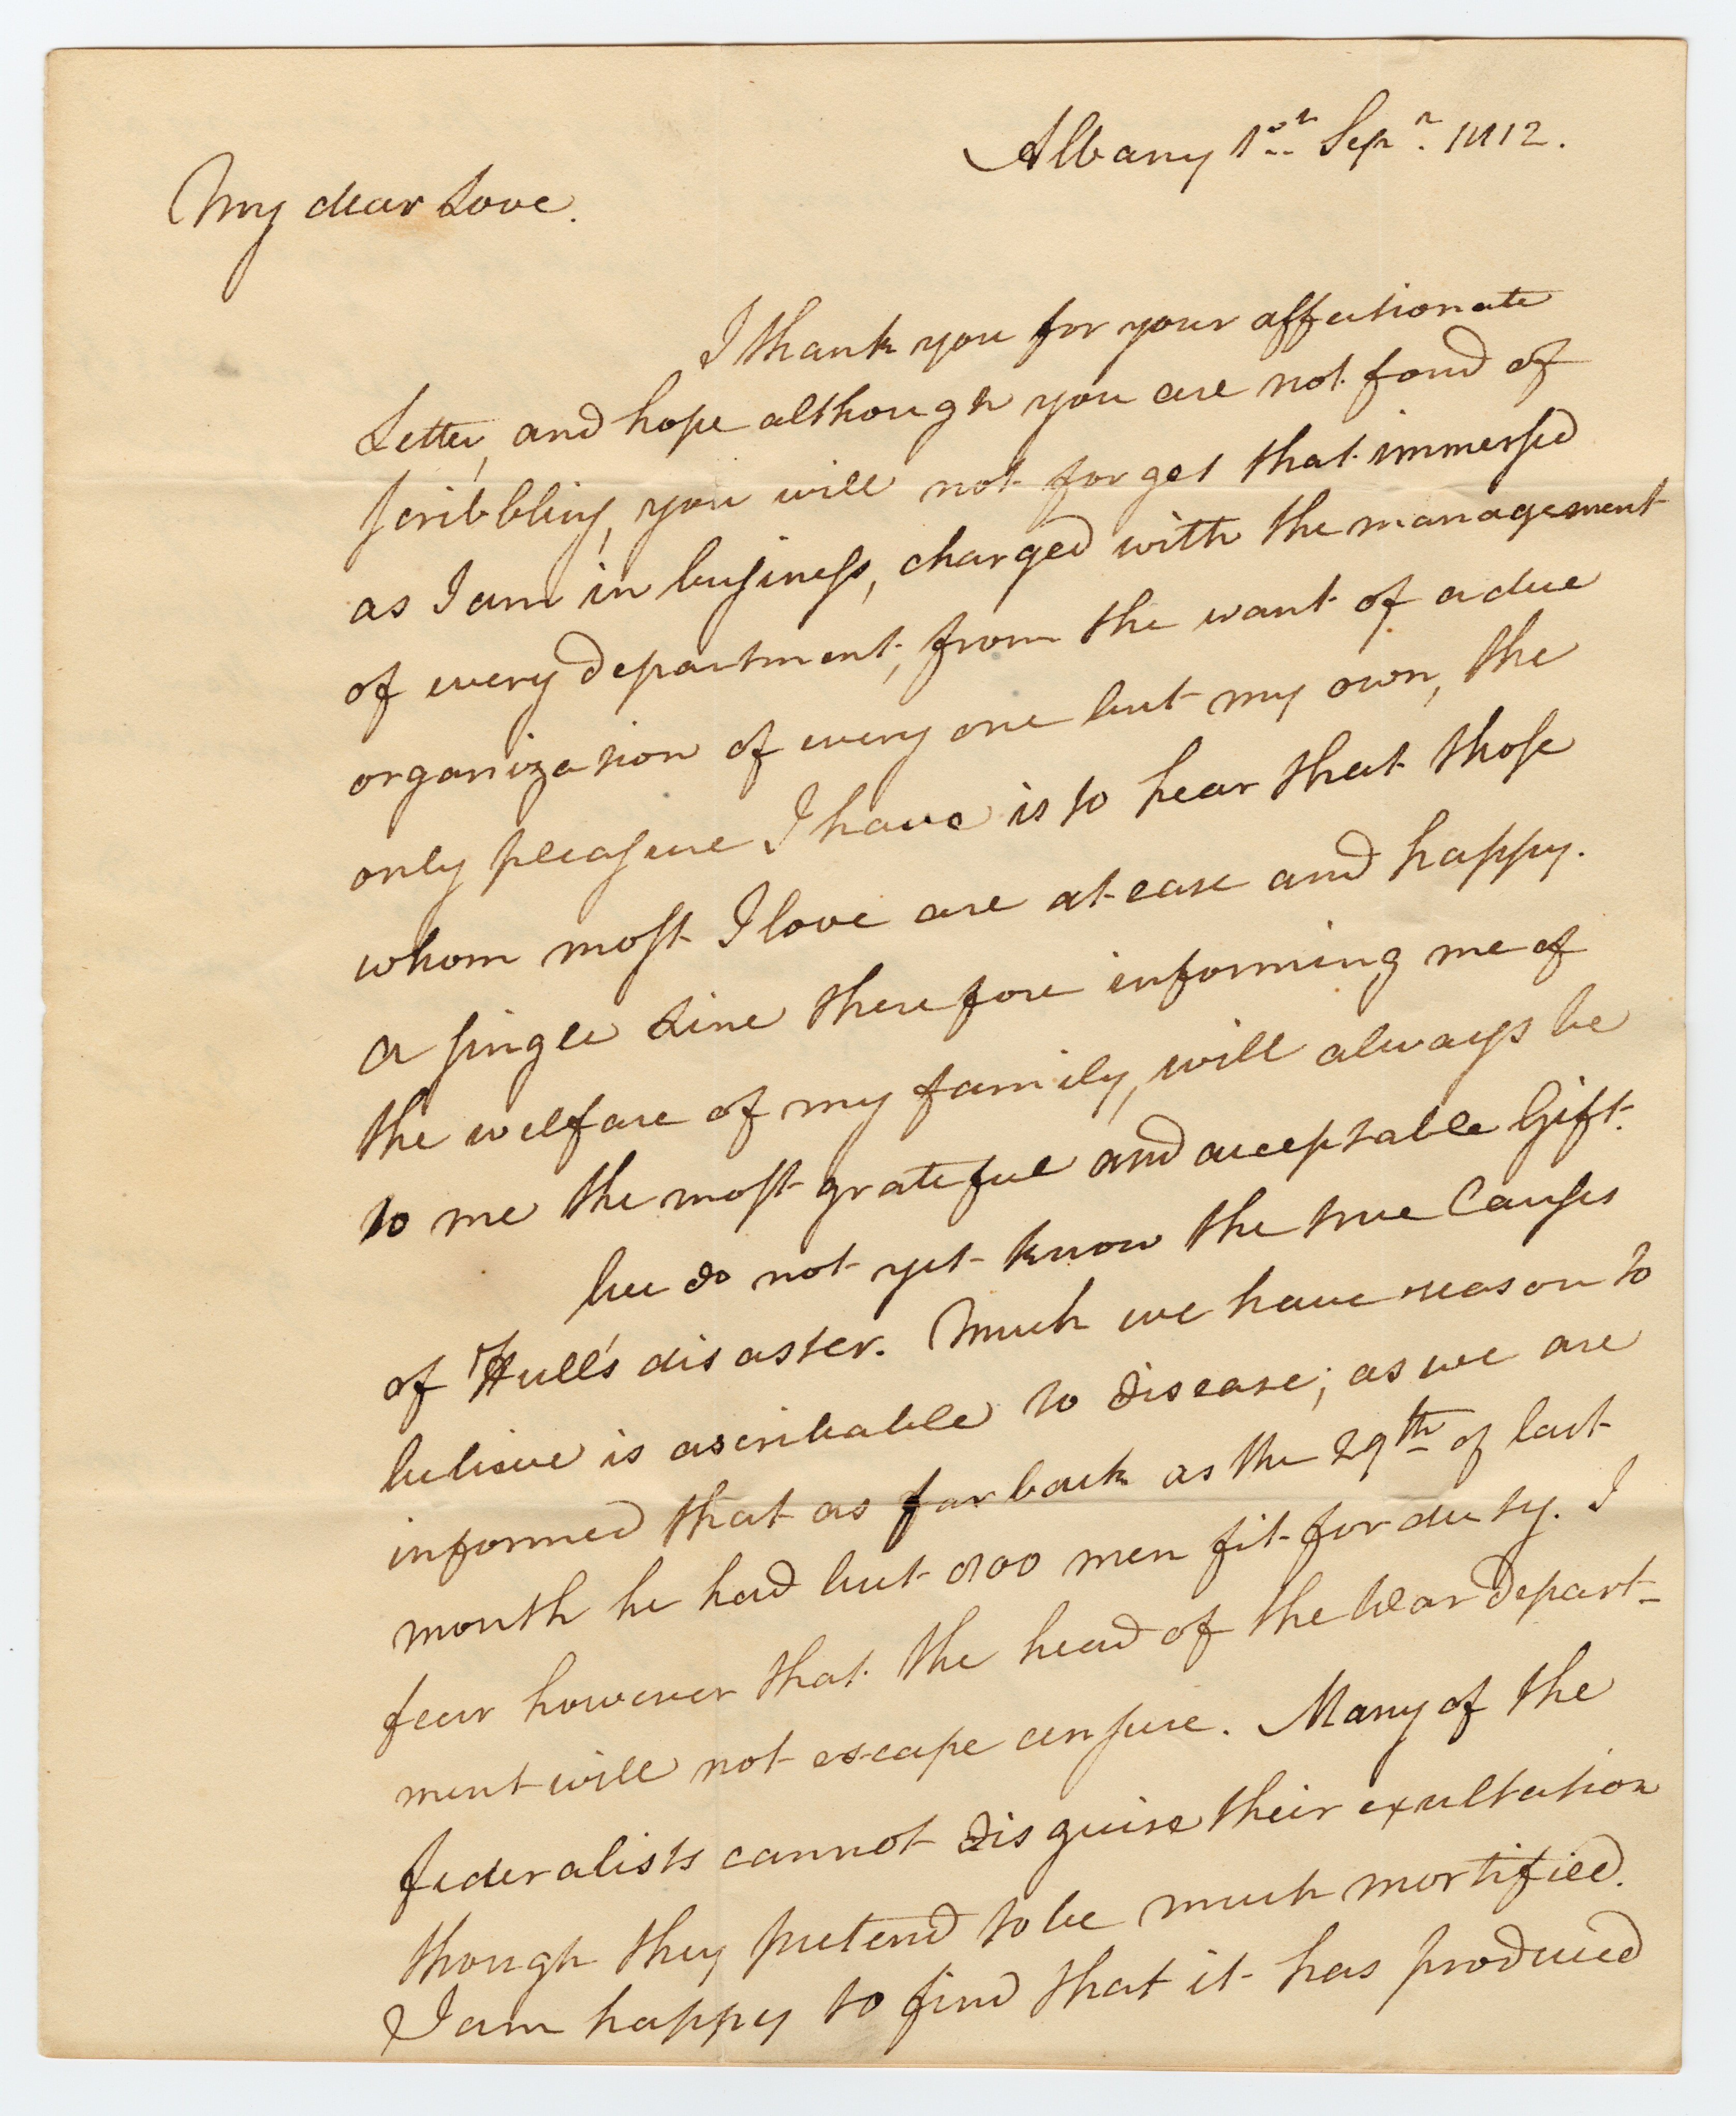 Albany 1st Sepr. 1812.
My dear Love.
I thank you for your affectionate
Letter, and hope although you are not fond of
scribbling, you will not forget that immersed
as I am in business, charged with the management
of every department, from the want of a due
organization of every one but my own, the
only pleasure I have is to hear that those
whom most I love are at ease and happy.
A single Line therefore informing me of
the welfare of my family, will always be
to me the most grateful and acceptable Gift.
We do not yet know the true Causes
of Hull's disaster. Much we have reason to
believe is ascribable to disease; as we are
informed that as far back as the 29th of last
month he had but 800 men fit for duty. I
fear however that the head of the War depart-
ment will not escape censure. Many of the
federalists cannot disguise their exultation
though they pretend to be much mortified.
I am happy to find that it has produced